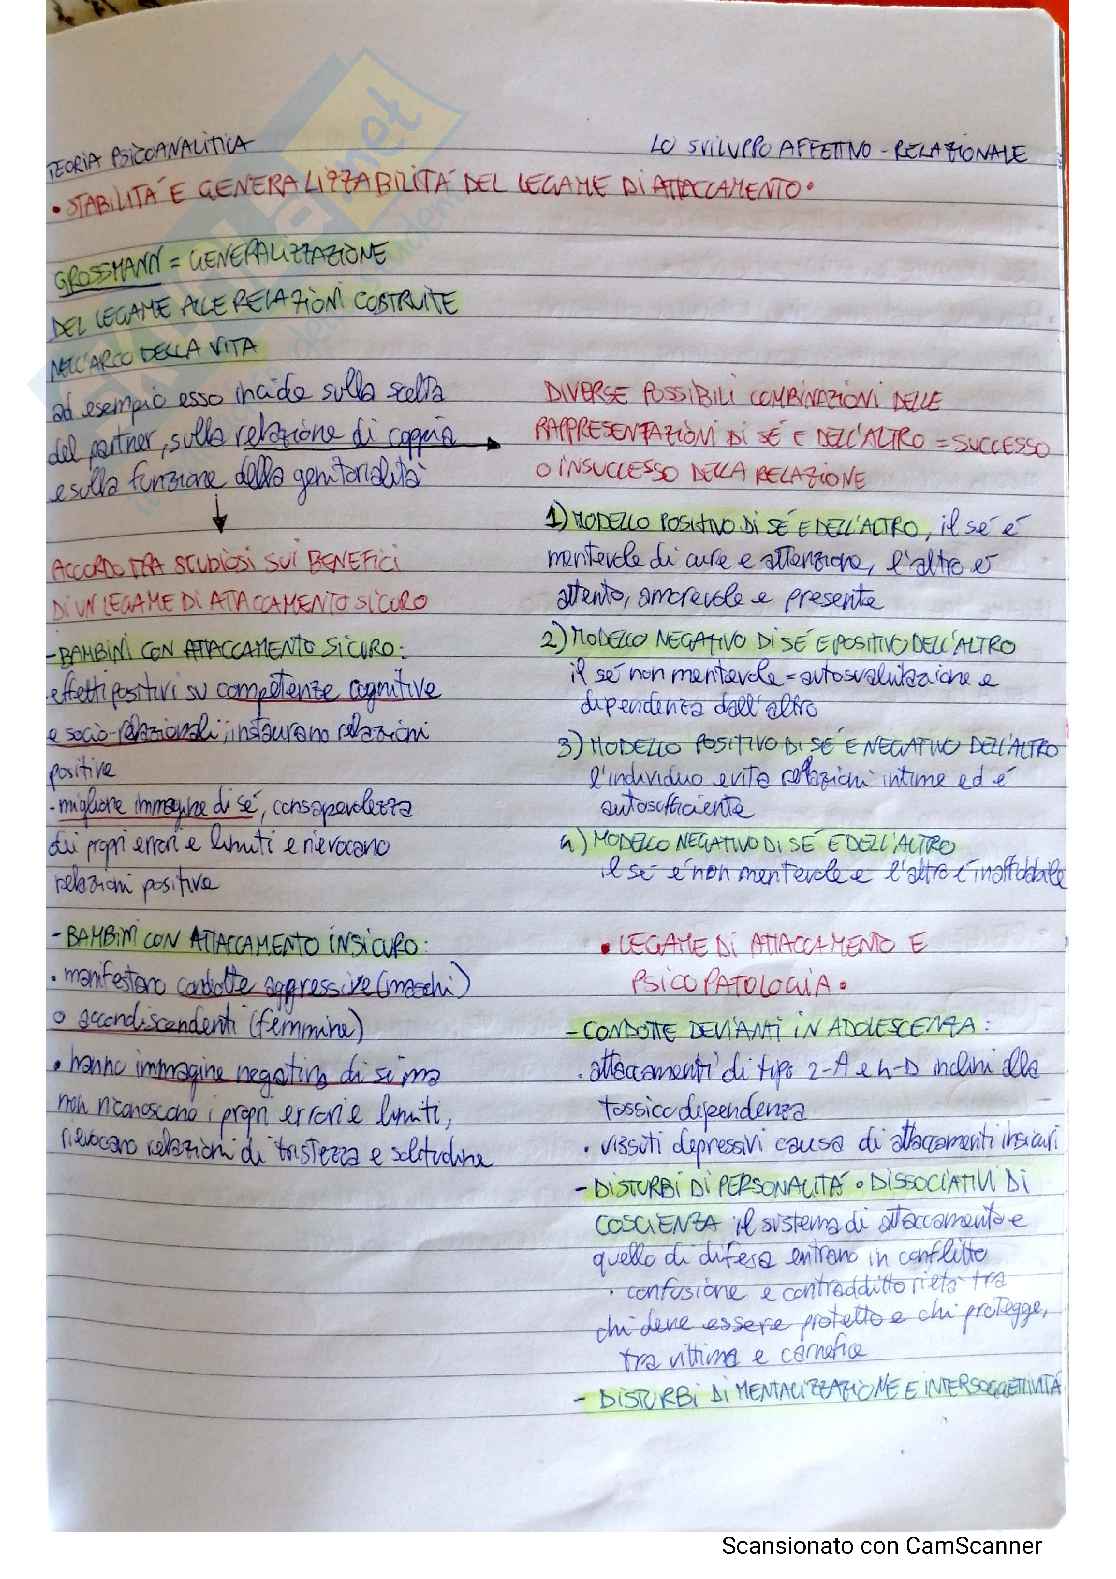 TEORIA PSICOANALITICA
LO SVILUPPO AFFETIVO - RELAZIONALE
• STABILITÀ E GENERALIZZABILITÀ DEL LEGAME DI ATTACCAMENTO •
GROSSMANN = GENERALIZZAZIONE
DEL LEGAME ALLE RELAZIONI COSTRUITE
NELL'ARCO DELLA VITA
ad esempio esso incide sulla scelta
del partner, sulla relazione di coppia
e sulla funzione della genitorialità
ACCORDO TRA STUDIOSI SUI BENEFICI
DI UN LEGAME DI ATACCAMENTO SICURO
- BAMBINI CON ATTACCAMENTO SICURO:
· effetti positivi su competenze cognitive
e socio-relazionali; instaurano relazioni
positive
· migliore immagine di sé, consapevolezza
dei propri errori e limiti e rievocano
relazioni positive
- BAMBINI CON ATTACCAMENTO INSICURO:
· manifestano condotte aggressive (maschi)
o accondiscendenti (femmine)
• hanno immagine negativa di sé ma
non riconoscono i propri errori e limiti,
rievocano relazioni di tristezza e solitudine
DIVERSE POSSIBILI COMBINAZIONI DELLE
RAPPRESENTAZIONI DI SÉ E DELL'ALTRO = SUCCESSO
O INSUCCESSO DELLA RELAZIONE
1) MODELLO POSITIVO DI SÉ E DELL'ALTRO, il sé è
meritevole di cure e attenzione, l'altro è
attento, amorevole e presente
2) MODELLO NEGATIVO DI SÉ E POSITIVO DELL'ALTRO
il sé non meritevole = autosvalutazione e
dipendenza dall'altro
3) MODELLO POSITIVO DI SÉ E NEGATIVO DELL'ALTRO
l'individuo evita relazioni intime ed è
autosufficiente
4) MODELLO NEGATIVO DI SÉ E DELL'ALTRO
il sé è non meritevole e l'altro è inaffidabile
• LEGAME DI ATTACCAMENTO E
PSICOPATOLOGIA •
- CONDOTTE DEVIANTI IN ADOLESCENZA:
· attaccamenti di tipo 2-A e 4-D inclini alla
tossicodipendenza
· vissuti depressivi causa di attaccamenti insicuri
- DISTURBI DI PERSONALITÀ • DISSOCIATIVI DI
COSCIENZA il sistema di attaccamento e
quello di difesa entrano in conflitto
· confusione e contraddittorietà tra
chi deve essere protetto e chi protegge,
tra vittima e carnefice
- DISTURBI DI MENTALIZZAZIONE E INTERSOGGETTIVITÀ
Scansionato con CamScanner